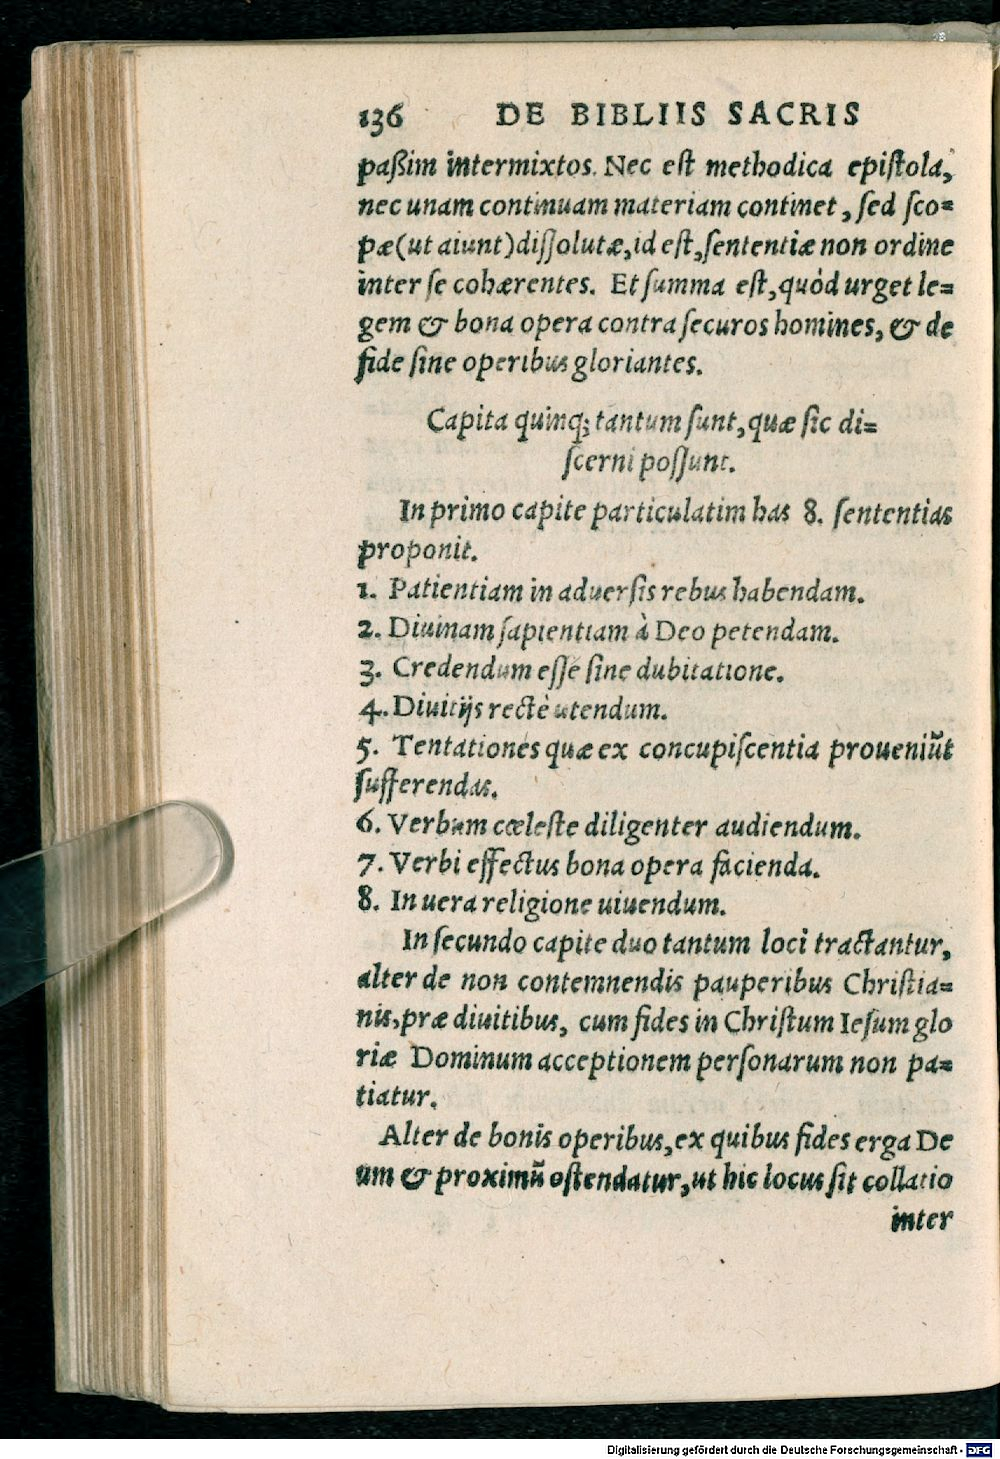 136 DE BIBLIIS SACRIS
paßim intermixtos. Nec est methodica epistola,
nec unam continuam materiam continet, sed sco=
pæ(ut aiunt)dissolutæ, id est, sententiæ non ordine
inter se cohærentes. Et summa est, quòd urget le=
gem & bona opera contra securos homines, & de
fide sine operibus gloriantes.
Capita quinq; tantum sunt, quæ sic di=
scerni possunt.
In primo capite particulatim has 8. sententias
proponit.
1. Patientiam in aduersis rebus habendam.
2. Diuinam sapientiam à Deo petendam.
3. Credendum esse sine dubitatione.
4. Diuitijs rectè utendum.
5. Tentationes quæ ex concupiscentia proueniũt
sufferendas.
6. Verbum cœleste diligenter audiendum.
7. Verbi effectus bona opera facienda.
8. In uera religione uiuendum.
In secundo capite duo tantum loci tractantur,
alter de non contemnendis pauperibus Christia=
nis, præ diuitibus, cum fides in Christum Iesum glo
riæ Dominum acceptionem personarum non pa=
tiatur.
Alter de bonis operibus, ex quibus fides erga De
um & proximũ ostendatur, ut hic locus sit collatio
inter
Digitalisierung gefördert durch die Deutsche Forschungsgemeinschaft - DFG